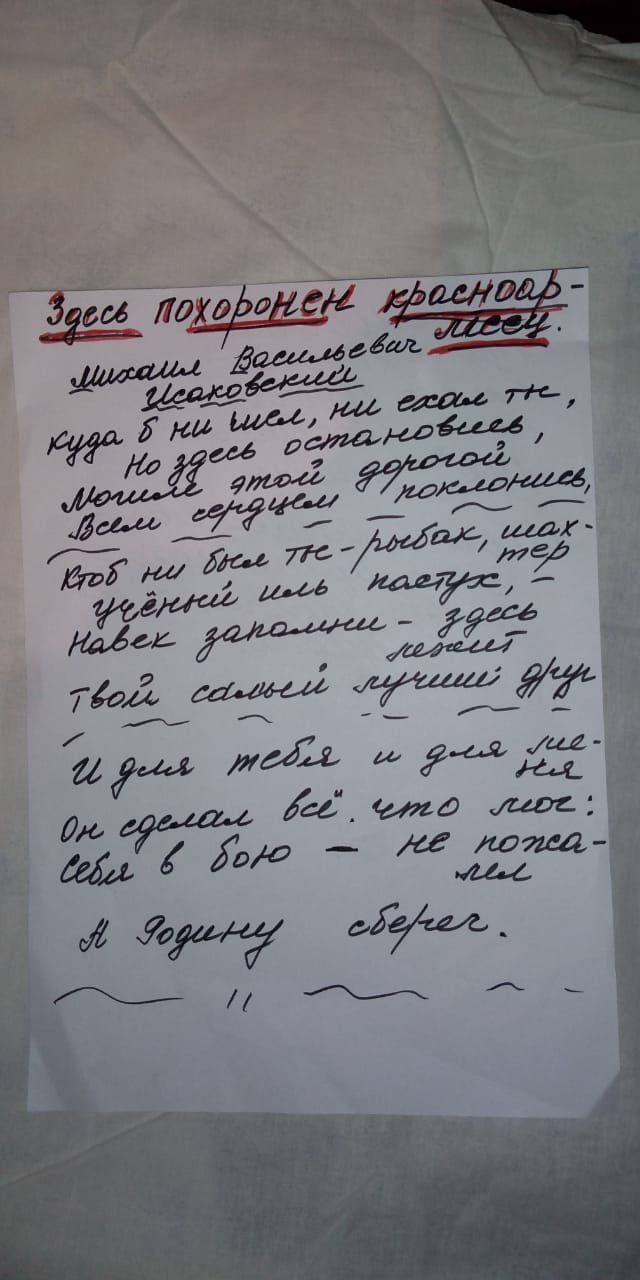 Здесь похоронен красноар-
меец.
Михаил Васильевич
Исаковский
Куда б ни шел, ни ехал ты,
Но здесь остановись,
Могиле этой дорогой
Всем сердцем поклонись,
Ктоб ни был ты - рыбак, шах-
тер
учёный иль пастух, -
Навек запомни - здесь
лежит
Твой самый лучший друг
И для тебя и для ме-
ня
Он сделал всё. что мог:
Себя в бою - не пожа-
лел
А Родину сберег.